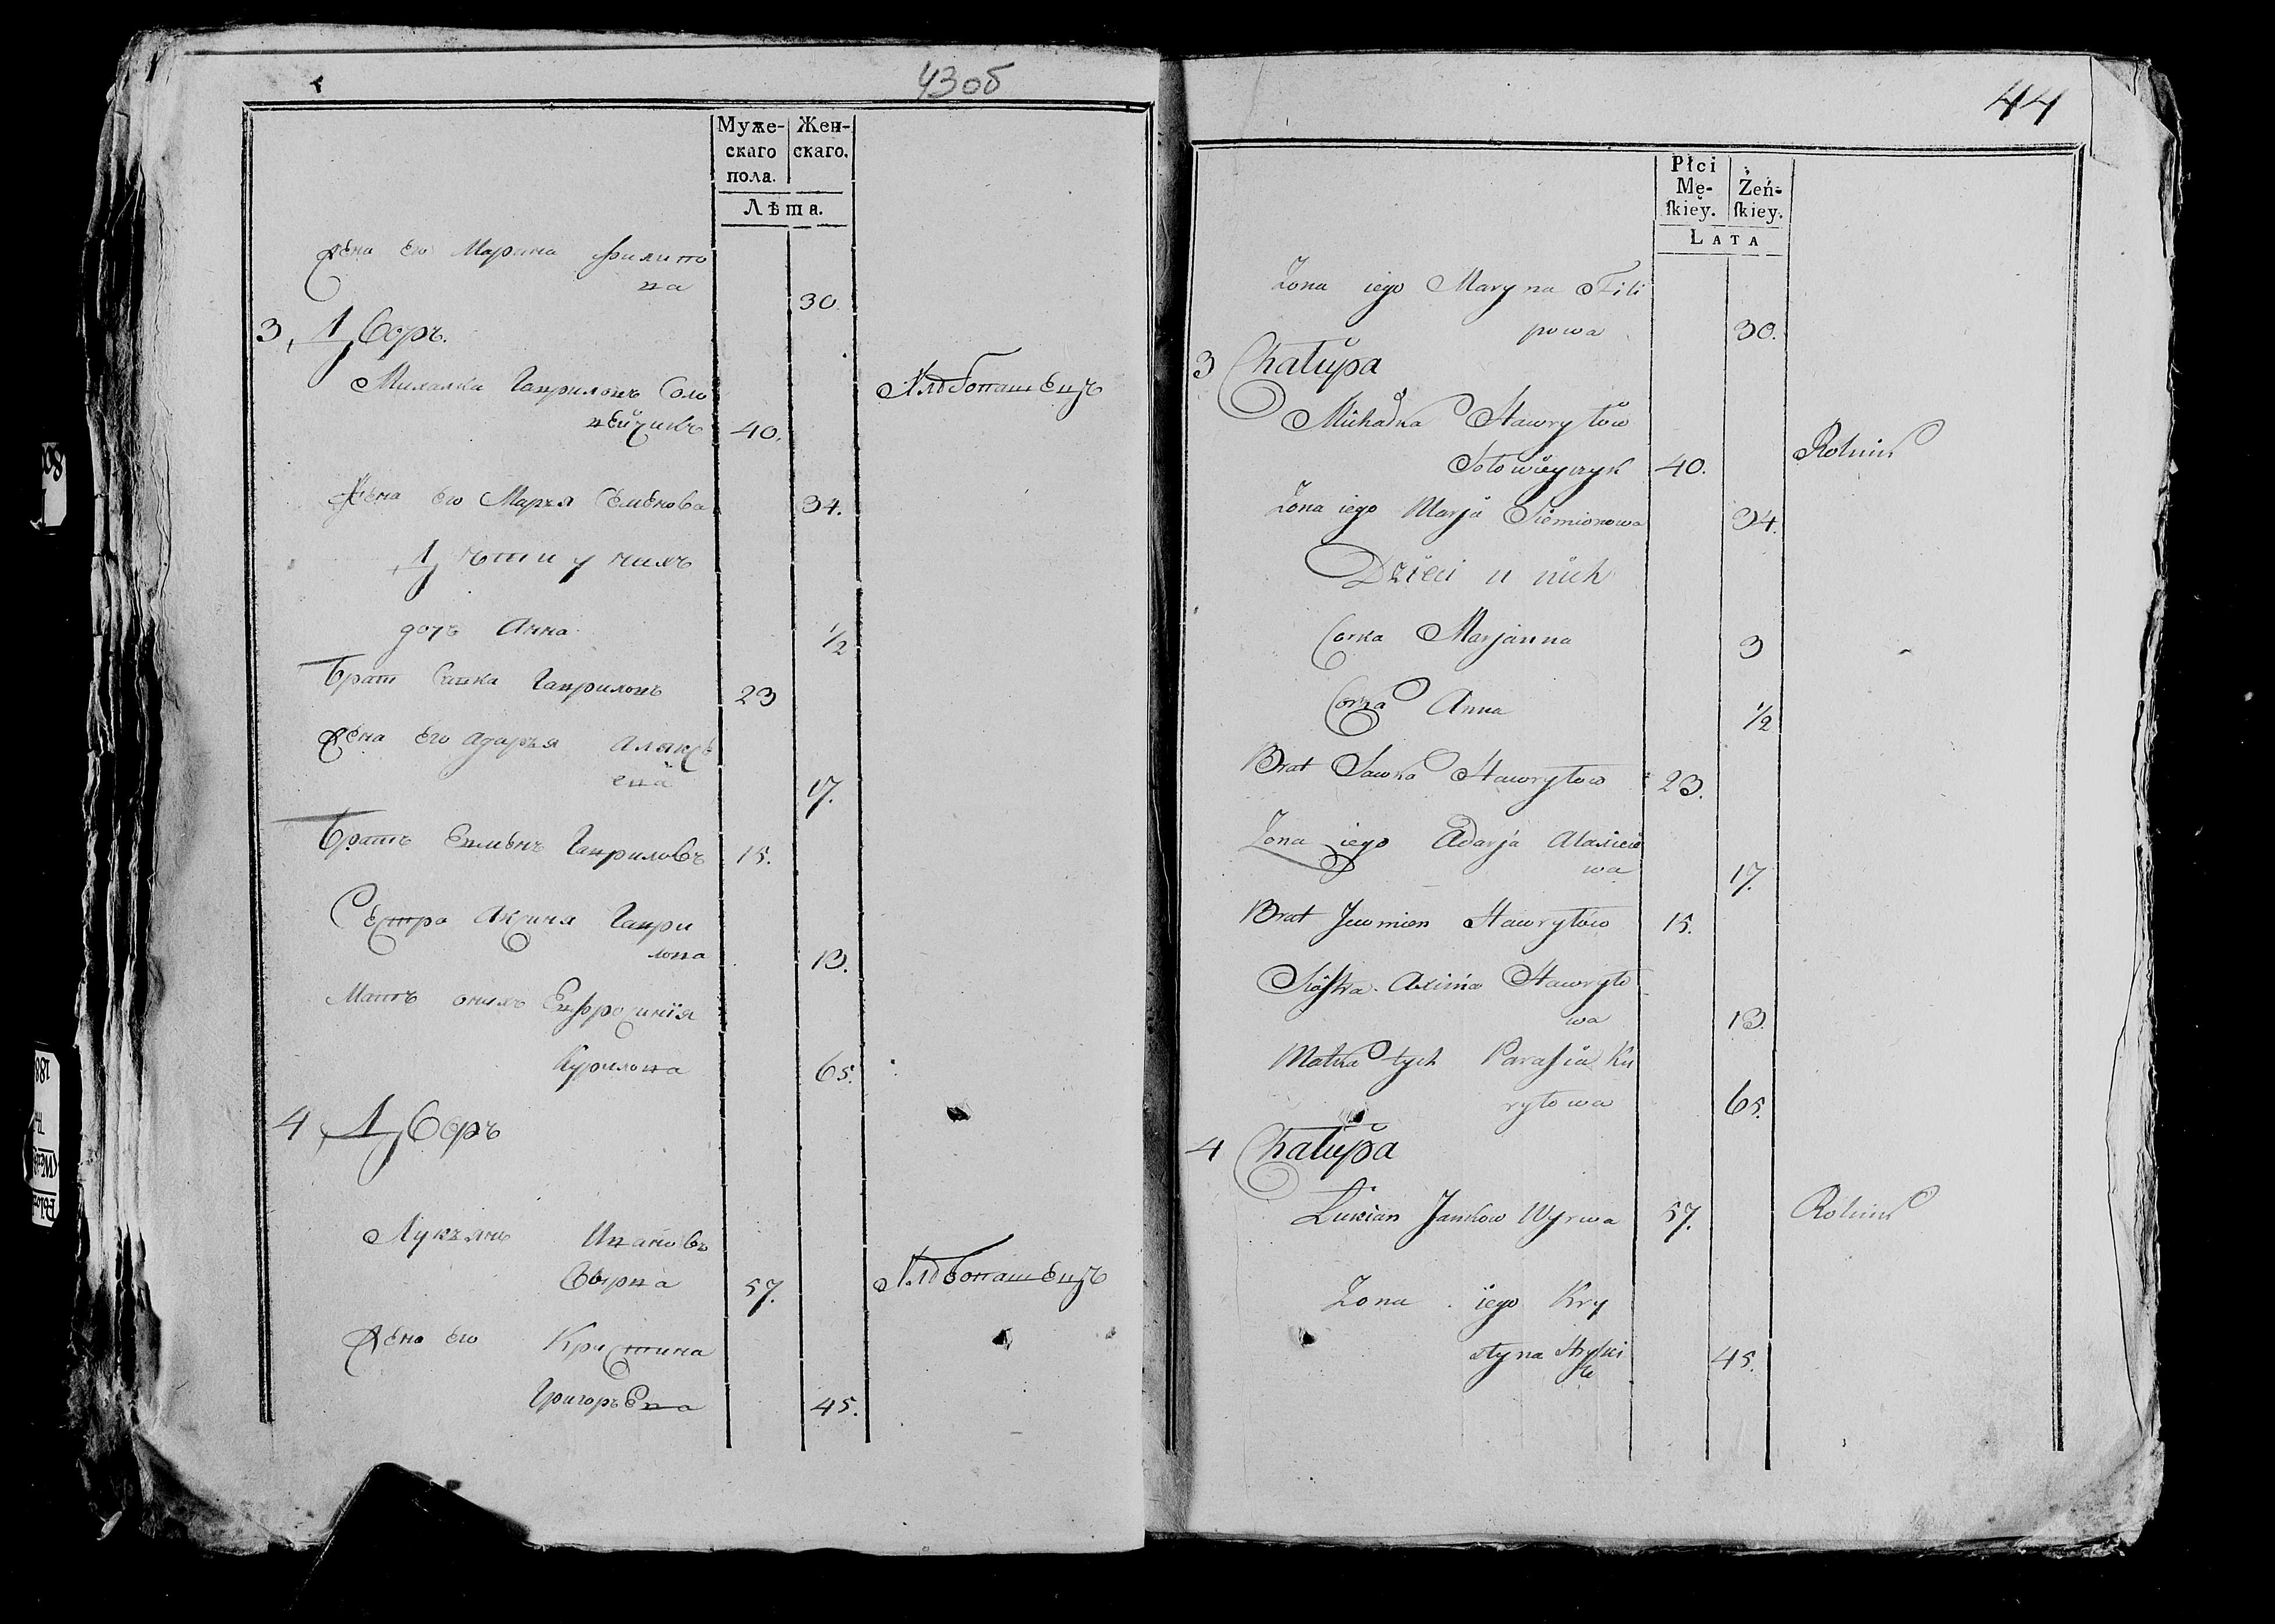 43об
Муже-
скаго
пола.
Жен-
скаго.
Лѣта.
Жена его Марина Филипо
ва
30.
3, Дворъ.
Михалка Гавриловъ Соло
вейчикъ 40. Хлѣбопашецъ
Жена его Марья Семенова 34.
Дѣти у нихъ
дочь Анна 1/2
Братъ Савка Гавриловъ 23
Жена его Адарья Алексѣ
ева 17.
Братъ Евменъ Гавриловъ 15.
Сестра Аксиня Гаври
лова 13.
Мать онихъ Евфросинія
Курилова 65.
4, Дворъ
Лукьянъ Ивановъ
Вырва 57. Хлѣбопашецъ
Жена его Кристина
Григорьева 45.
44
Płci
Mę-
skiey.
Żeń-
skiey.
LATA
Zona iego Maryna Fili
powa 30.
3 Chałupa
Michałka Hawryłow
Sołowieyczyk 40. Rolnik
Zona iego Marja Siemionowa 34.
Dzieci u nich
Corka Marjanna 3
Corka Anna 1/2
Brat Sawka Hawryłow 23.
Zona iego Adarja Alaxieie
wa 17.
Brat Jewmien Hawryłow 15.
Siostra Axinia Hawryło
wa 13.
Matka tych Parasia Ku
ryłowa 65.
4 Chałupa
Łukian Jankow Wyrwa 57. Rolnik
Zona iego Kry
styna 45.